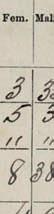 Fem. Mal
3 3
5 3
" "
8 38